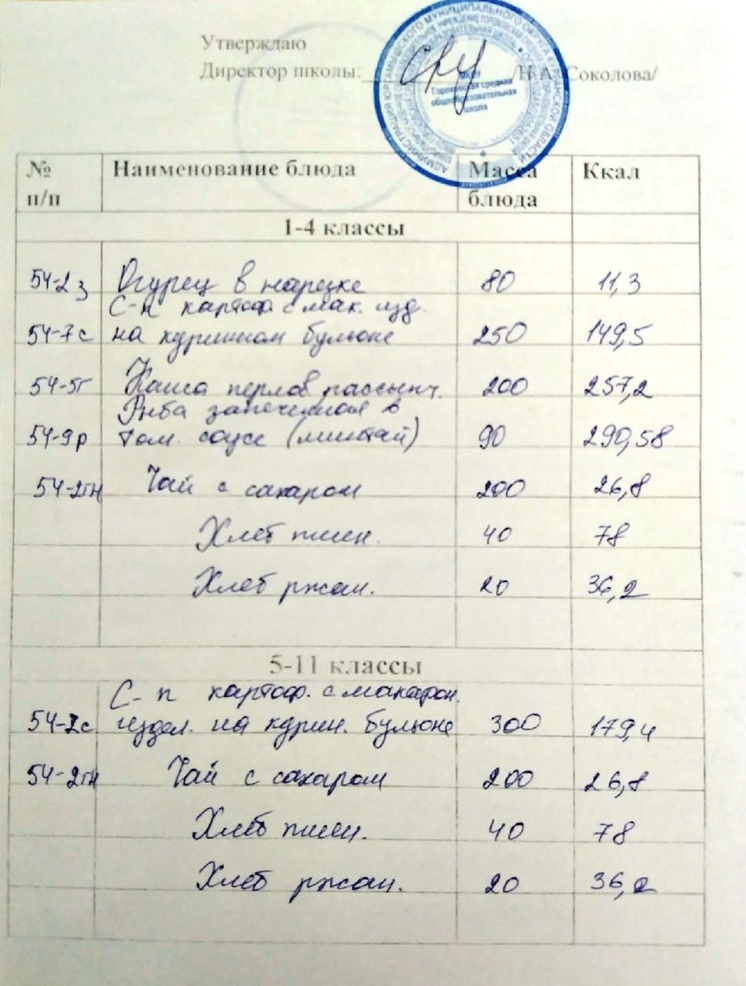 Утверждаю
Директор школы: /Н.А. Соколова/
Гороховская средняя
общеобразовательная
школа
№ п/п Наименование блюда Масса блюда Ккал
1-4 классы
54-2з Огурец в нарезке 80 11,3
С-п картоф с мак. изд.
54-7с на курином бульоне 250 149,5
54-5г Каша перлов рассыпч. 200 257,2
Рыба запеченная в
54-9р том. соусе (минтай) 90 290,58
54-2гн Чай с сахаром 200 26,8
Хлеб пшен. 40 78
Хлеб ржан. 20 36,2
5-11 классы
С-п картоф. с макарон.
54-7с издел. на курин. бульоне 300 179,4
54-2гн Чай с сахаром 200 26,8
Хлеб пшен. 40 78
Хлеб ржан. 20 36,2